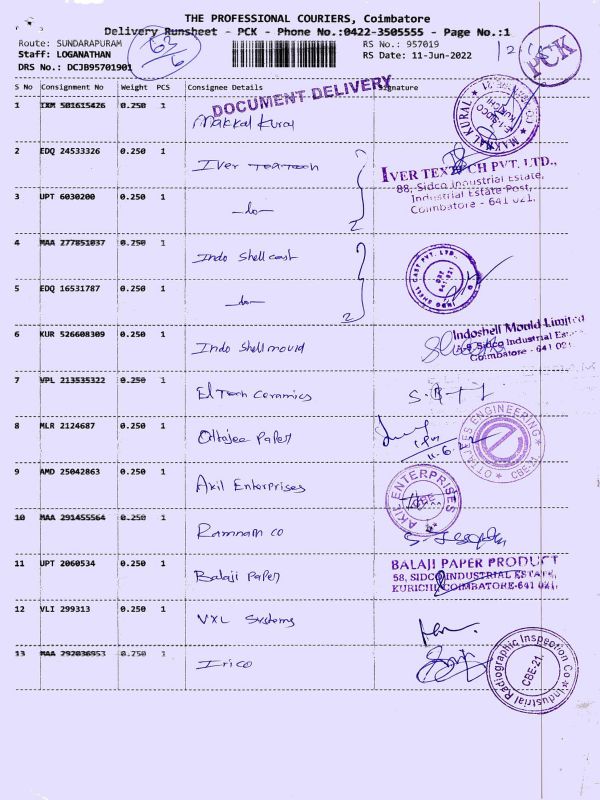 THE PROFESSIONAL COURIERS, Coimbatore
Delivery Runsheet - PCK - Phone No.:0422-3505555 - Page No.:1
Route: SUNDARAPURAM
RS No.: 957019
Staff: LOGANATHAN
RS Date: 11-Jun-2022
DRS No.: DCJB95701901
63/6
PCK
S No Consignment No Weight PCS Consignee Details Signature
DOCUMENT DELIVERY
1 IXM 501615426 0.250 1 Makkal Kural
MAKKAL KURAL
2 EDQ 24533326 0.250 1 Iver Textech
IVER TEXTECH PVT. LTD.,
88, Sidco Industrial Estate,
Industrial Estate Post,
Coimbatore - 641 021.
3 UPT 6030200 0.250 1 -do-
2
4 MAA 277851037 0.250 1 Indo Shell cast
INDO SHELL CAST PVT. LTD.
5 EDQ 16531787 0.250 1 -do-
2
6 KUR 526608309 0.250 1 Indo Shell mould
Indoshell Mould Limited
A-9, Sidco Industrial Estate
Coimbatore - 641 021
7 VPL 213535322 0.250 1 El Tech Ceramics
8 MLR 2124687 0.250 1 Ottajee Paper
11-6-22
OTTAJEES ENGINEERING
CBE-21
9 AMD 25042863 0.250 1 Akil Enterprises
AKIL ENTERPRISES
CBE
10 MAA 291455564 0.250 1 Ramnath co
11 UPT 2060534 0.250 1 Balaji Paper
BALAJI PAPER PRODUCT
58, SIDCO INDUSTRIAL ESTATE,
KURICHI, COIMBATORE-641 021.
12 VLI 299313 0.250 1 VXL Systems
13 MAA 292036953 0.250 1 Irico
Industrial Radiographic Inspection Co
CBE-21.